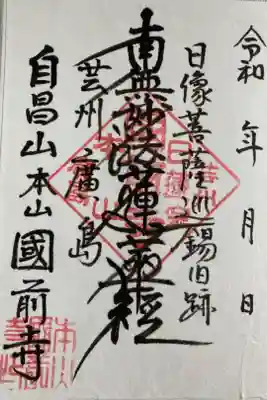 令和　年　月　日
日像菩薩巡錫旧跡
南無妙法蓮華経
芸州　廣島
自昌山本山國前寺